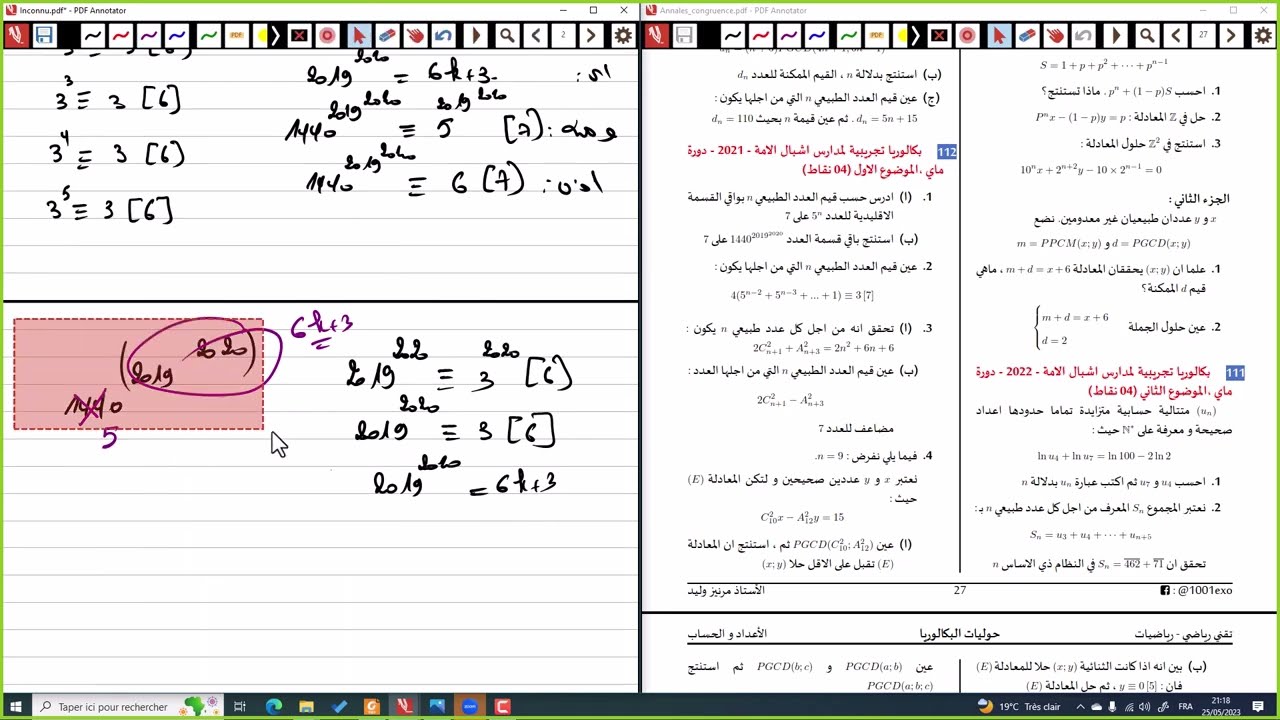 Inconnu.pdf* - PDF Annotator
Annales_congruence.pdf - PDF Annotator
2
27
2019^2020 = 6k+3. : اذن
3^3 ≡ 3 [6]
1440^2019^2020 ≡ 5^2019^2020 [7] : ومنه
3^4 ≡ 3 [6]
1440^2019^2020 ≡ 6 [7] : اذن
3^5 ≡ 3 [6]
(2019^2020) 6k+3
1440
5
2019^2020 ≡ 3^2020 [6]
2019^2020 ≡ 3 [6]
2019^2020 = 6k+3
S = 1 + p + p² + ⋯ + pⁿ⁻¹
1. احسب pⁿ + (1 − p)S . ماذا تستنتج؟
2. حل في ℤ المعادلة : Pⁿx − (1 − p)y = p
3. استنتج في ℤ² حلول المعادلة :
10ⁿx + 2ⁿ⁺²y − 10 × 2ⁿ⁻¹ = 0
الجزء الثاني :
x و y عددان طبيعيان غير معدومين. نضع
m = PPCM(x; y) و d = PGCD(x; y)
1. علما ان (x; y) يحققان المعادلة m + d = x + 6 ، ماهي
قيم d الممكنة؟
2. عين حلول الجملة
m + d = x + 6
d = 2
111 بكالوريا تجريبية لمدارس اشبال الامة - 2022 - دورة
ماي ،الموضوع الثاني (04 نقاط)
(uₙ) متتالية حسابية متزايدة تماما حدودها اعداد
صحيحة و معرفة على ℕ* حيث :
ln u₄ + ln u₇ = ln 100 − 2 ln 2
1. احسب u₄ و u₇ ثم اكتب عبارة uₙ بدلالة n
2. نعتبر المجموع Sₙ المعرف من اجل كل عدد طبيعي n بـ :
Sₙ = u₃ + u₄ + ⋯ + uₙ₊₅
تحقق ان Sₙ = 4̅6̅2̅ + 7̅1̅ في النظام ذي الاساس n
(ب) استنتج بدلالة n ، القيم الممكنة للعدد dₙ
(ج) عين قيم العدد الطبيعي n التي من اجلها يكون :
dₙ = 5n + 15 . ثم عين قيمة n بحيث dₙ = 110
112 بكالوريا تجريبية لمدارس اشبال الامة - 2021 - دورة
ماي ،الموضوع الاول (04 نقاط)
1. (ا) ادرس حسب قيم العدد الطبيعي n بواقي القسمة
الاقليدية للعدد 5ⁿ على 7
(ب) استنتج باقي قسمة العدد 1440^2019^2020 على 7
2. عين قيم العدد الطبيعي n التي من اجلها يكون :
4(5ⁿ⁻² + 5ⁿ⁻³ + ... + 1) ≡ 3 [7]
3. (ا) تحقق انه من اجل كل عدد طبيعي n يكون :
2C²ₙ₊₁ + A²ₙ₊₃ = 2n² + 6n + 6
(ب) عين قيم العدد الطبيعي n التي من اجلها العدد :
2C²ₙ₊₁ − A²ₙ₊₃
مضاعف للعدد 7
4. فيما يلي نفرض : n = 9.
نعتبر x و y عددين صحيحين و لتكن المعادلة (E)
حيث :
C²₁₀x − A²₁₂y = 15
(ا) عين PGCD(C²₁₀; A²₁₂) ثم ، استنتج ان المعادلة
(E) تقبل على الاقل حلا (x; y)
@1001exo :
27
الأستاذ مرنيز وليد
تقني رياضي - رياضيات
حوليات البكالوريا
الأعداد و الحساب
(ب) بين انه اذا كانت الثنائية (x; y) حلا للمعادلة (E)
فان : y ≡ 0 [5] ، ثم حل المعادلة (E)
عين PGCD(a; b) و PGCD(b; c) ثم استنتج
PGCD(a; b; c)
Taper ici pour rechercher
19°C Très clair
FRA
21:18
25/05/2023